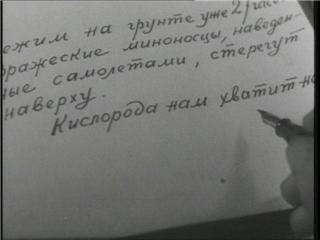 ежим на грунте уже 2 часа
вражеские миноносцы, наведен-
ные самолетами, стерегут
наверху.
Кислорода нам хватит на